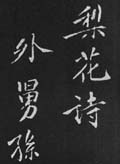 梨花詩
外舅孫